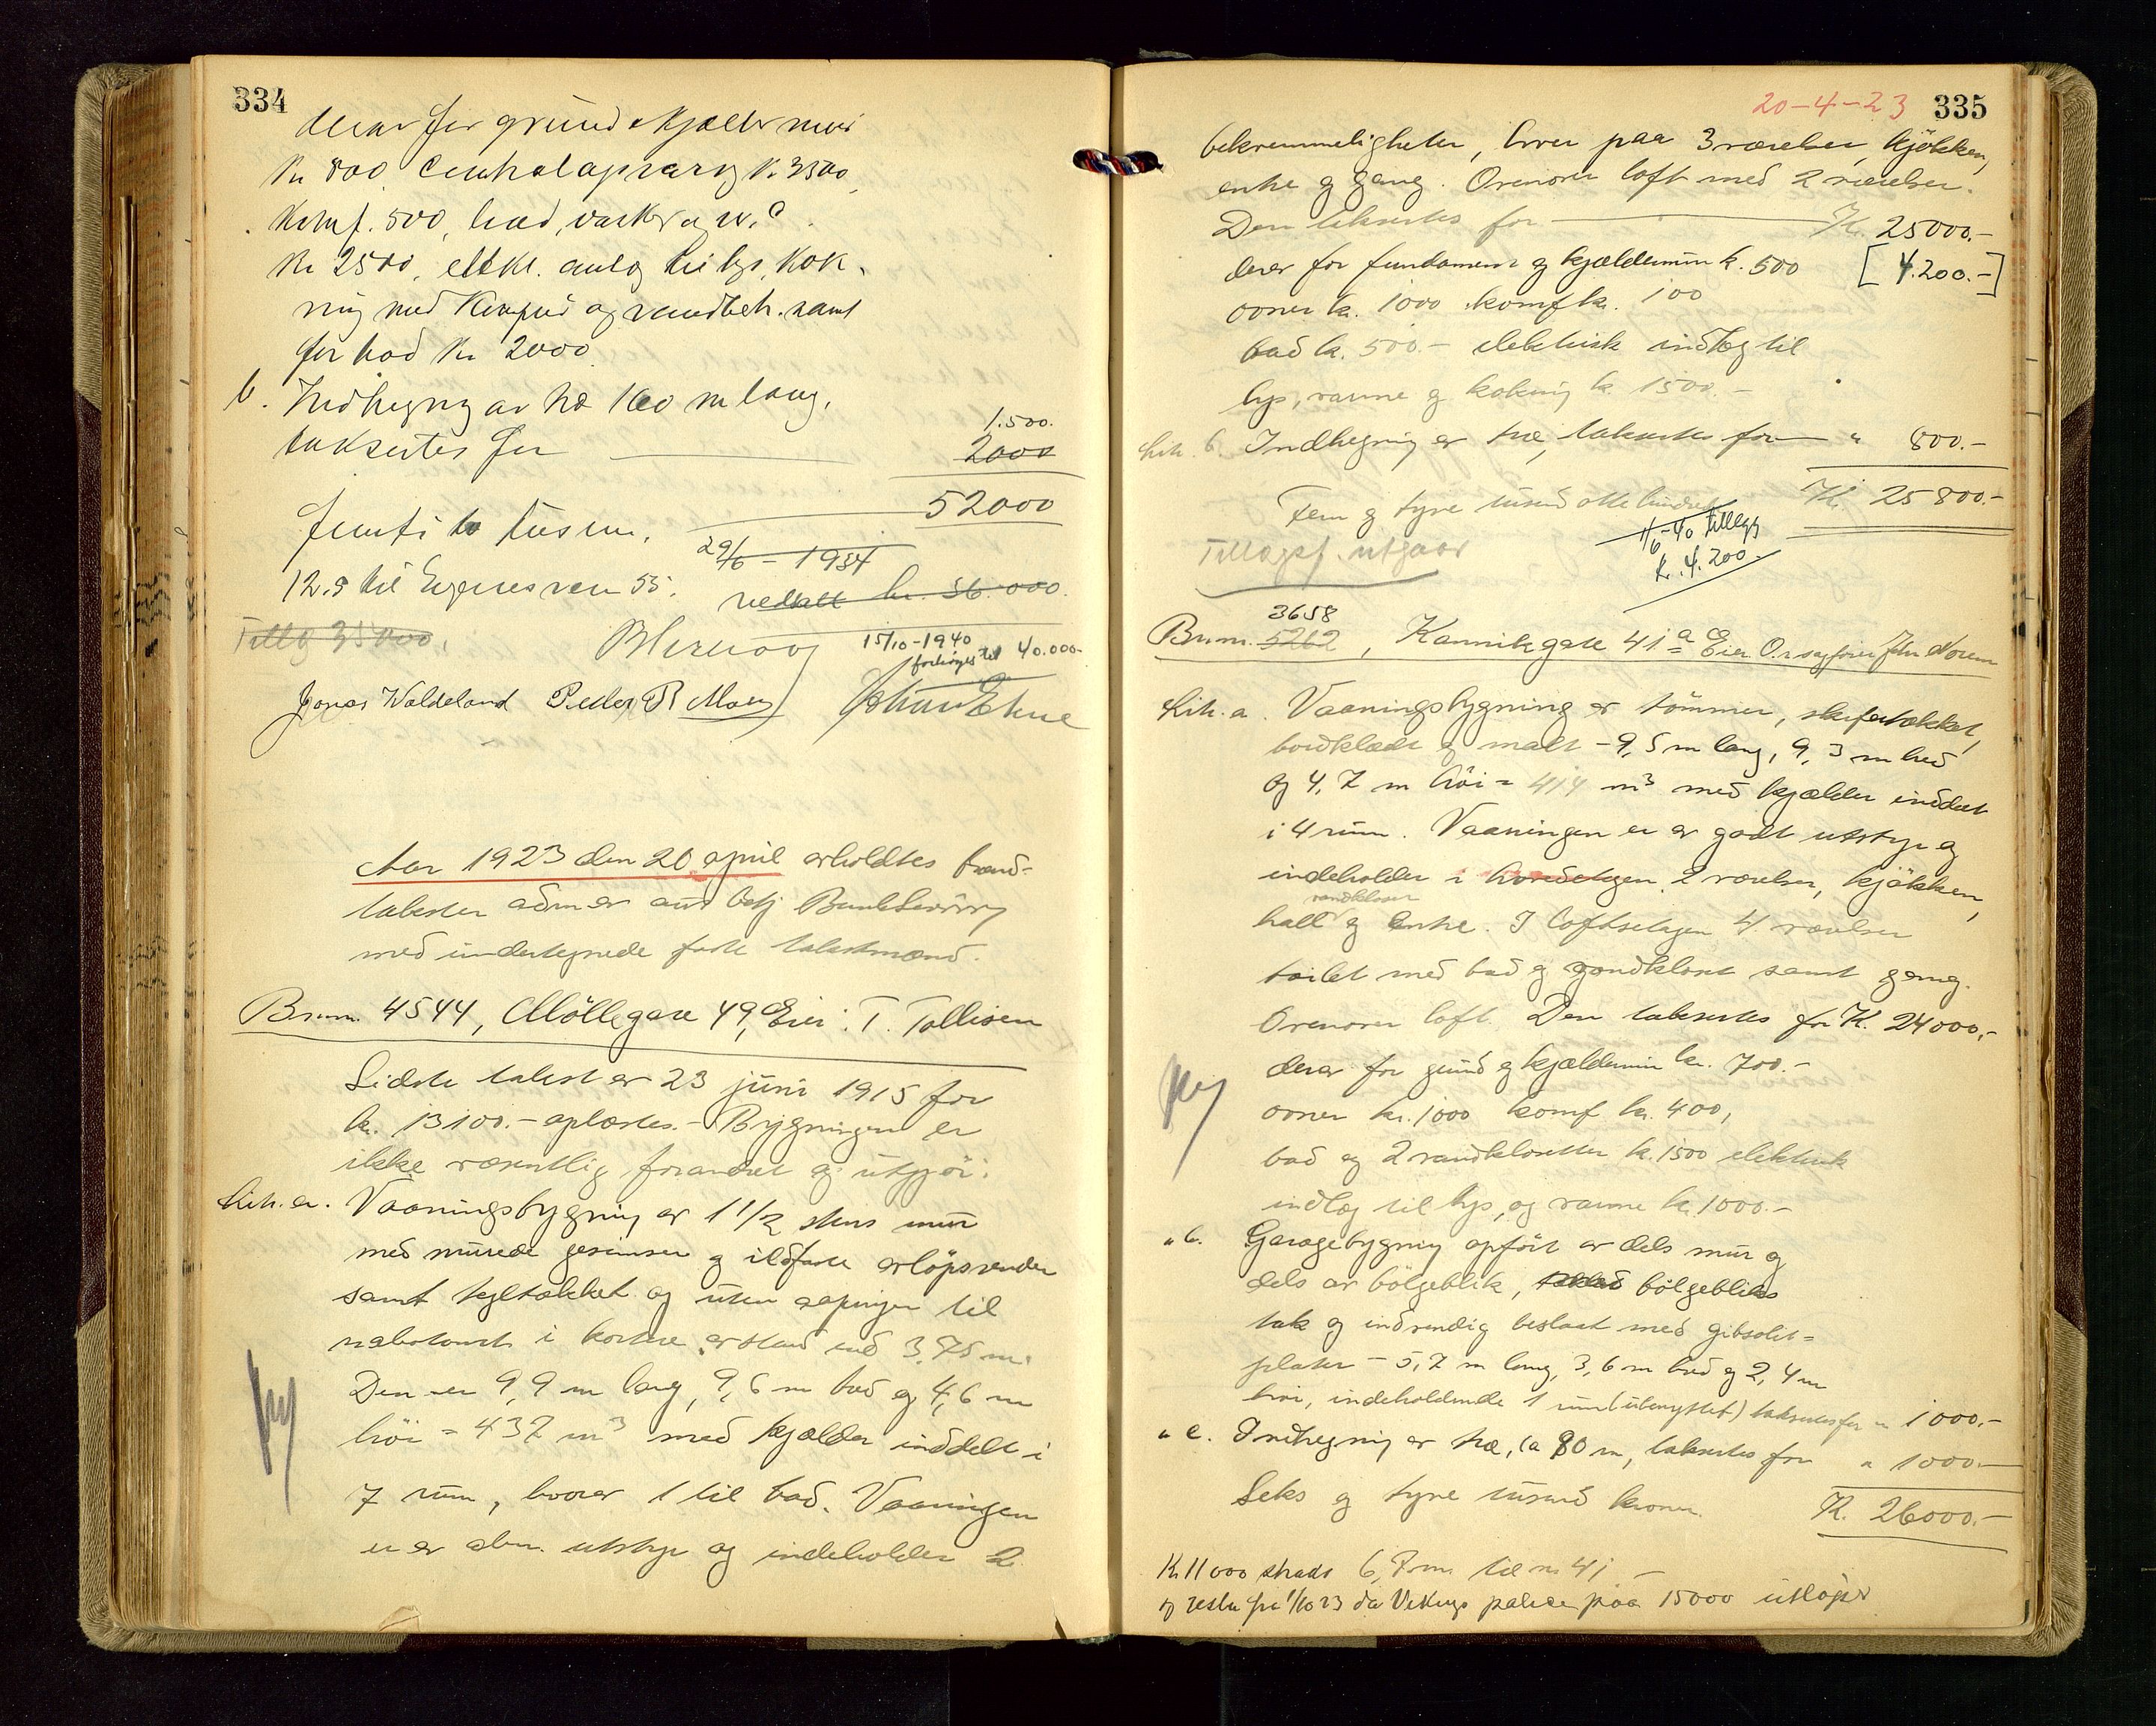 334
derav for grund & kjelder mur
Kr 800, Centralapparat Kr. 3500,
Komf. 500, bad, vasker og W.C.
Kr 2500, elektr. anlæg til lys, kok-
ning med Komfur og vandbeh. samt
for bad Kr 2000
b. Indhegning av træ 160 m lang,
1.500.
taksertes for 2000
52000
Femti to tusen.
29/6 - 1934
nedsatt kr. 36.000.
Tillg 35000.
15/10-1940
forhøyes til 40.000-
Jonas Waldeland Peder B Moen
Aar 1923 den 20 april avholdtes brand-
takster adm av
med undertegnede faste takstmænd.
Brnr. 4544, Möllegate 49, Eier: T. Tollisen
Sidste takst av 23 juni 1915 for
kr. 13100.- oplæstes. - Bygningen er
ikke væsentlig forandret og utgjör:
Lit. a. Vaaningsbygning av 1 1/2 stens mur
med murede gesimser og ildfaste avlöpsrender
samt tegltækket og uten aapninger til
nabotomt i kortere avstand end 3,75 m.
Den er 9,9 m lang, 9,6 m bred og 4,6 m
höi = 437 m³ med kjælder inddelt i
7 rum, hvorav 1 til bad. Vaaningen
er av alm. utstyr og indeholder 2
20-4-23 335
bekvemmeligheter, hver paa 3 værelser, kjökken,
entre og gang. Ovenover loft med 2 værelser.
Den taksertes for Kr. 25000.-
derav for fundament og kjældermur k. 500 [4.200.-]
ovner kr. 1000 komf kr. 100
bad kr. 500.- elektrisk indlæg til
lys, varme og kokning kr. 1500.-
Lit. b. Indhegning av træ, taksertes for " 800.-
Fem og tyve tusend otte hundrede Kr. 25800.-
11/6-40 tillegg
kr. 4.200.-
Tillægsf. utgaar
3658
Brnr. 5262, Kannikgate 41a Eier O.r.sagfører
Lit. a. Vaaningsbygning av tömmer, skifertækket,
bordklædt og malt - 9,5 m lang, 9,3 m bred
og 4,7 m höi = 414 m³ med kjælder inddelt
i 4 rum. Vaaningen er av godt utstyr og
indeholder i hovedetagen 2 værelser, kjökken,
vandkloset
hall og entre. I loftsetagen 4 værelser
toilet med bad og vandkloset samt gang.
Ovenover loft. Den taksertes for K. 24000.-
derav for grund og kjældermur kr. 700.-
ovner kr. 1000 komf kr. 400,
bad og 2 vandklosetter kr. 1500 elektrisk
indlæg til lys, og varme kr. 1000.-
" b. Garagebygning opfört av dels mur og
dels av bölgeblik, bölgebliks
tak og indvendig beslaat med gibsolit=
plater - 5,7 m lang, 3,6 m bred og 2,4 m
höi, indeholdende 1 rum (ubenyttet) taksertes for " 1000.-
" c. Indhegning av træ, ca 80 m, taksertes for " 1000.-
Seks og tyve tusend kroner. K. 26000.-
Kr 11000 straks
og resten fra 1/10 23 da Vikings police paa 15000 utlöper